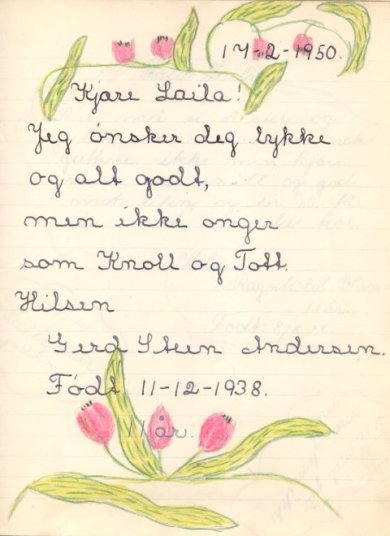 17-2-1950.
Kjære Laila!
Jeg ønsker deg lykke
og alt godt,
men ikke onger
som Knoll og Tott.
Hilsen
Gerd Steen Andersen.
Født 11-12-1938.
11 år.